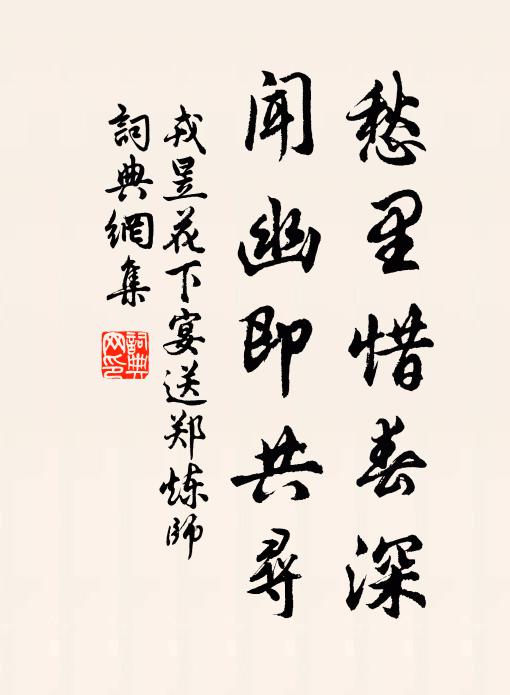 愁里惜春深
闻幽即共寻
戎昱花下宴送郑炼师
詞典網集
詞典
网印